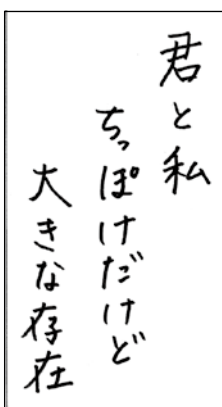 君と私
ちっぽけだけど
大きな存在